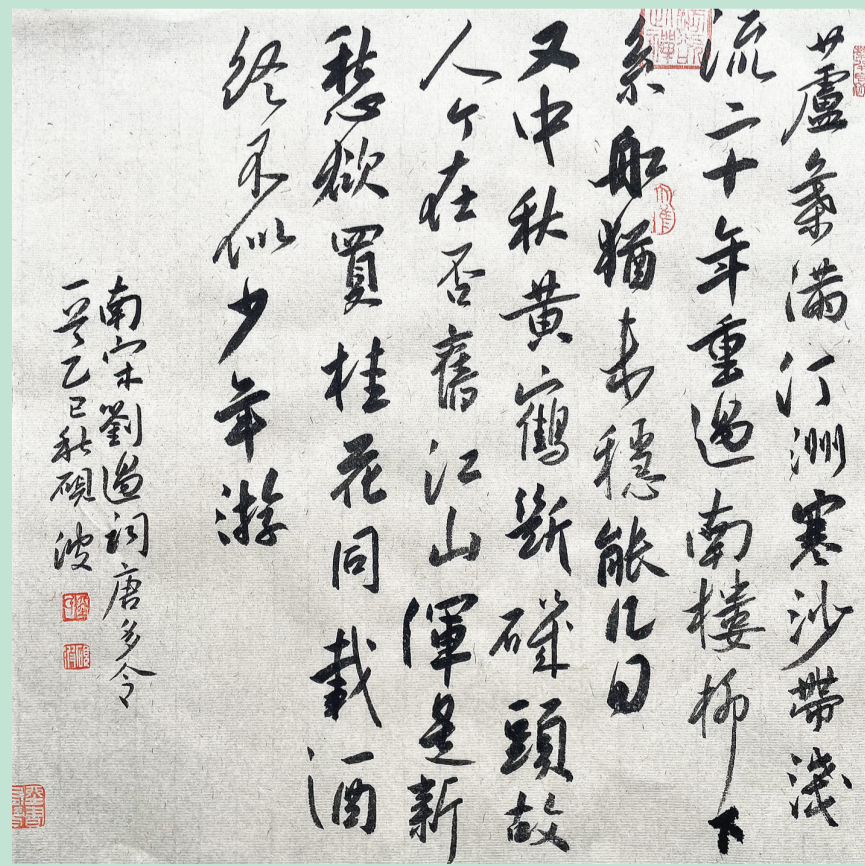 蘆葉滿汀洲寒沙帶淺
流二十年重過南樓柳下
系船猶未穩能几日
又中秋黄鶴斷磯頭故
人今在否舊江山渾是新
愁欲買桂花同載酒
終不似少年游
南宋劉過詞唐多令
一首乙巳秋硯波